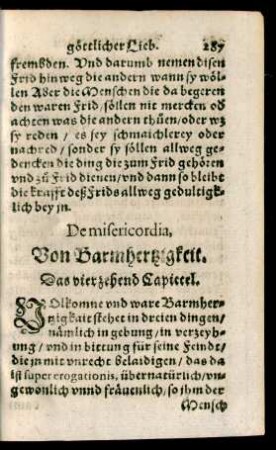 göttlicher Lieb. 287
fremßden. Vnd darumb nemen disen
Frid hinweg die andern wann sy wöl-
len Aßer die Menschen die da begeren
den waren Frid/ söllen nit mercken oß
achten was die andern thüen/oder wz
sy reden/ es sey schmaichlerey oder
nachred/ sonder sy söllen allweg ge-
dencken die ding die zum Frid gehören
vnd zů Frid dienen/vnd dann so bleibt
die krafft deß Frids allweg gedultigk-
lich bey jn.
De misericordia,
Von Barmhertzigkeit.
Das vierzehend Capittel.
VOlkomne vnd ware Barmher-
tzigkait stehet in dreien dingen/
nämlich in gebung/ in verzeyh-
ung/ vnd in bittung für seine Feindt/
die jn mit vnrecht belaidigen/ das da
ist supererogationis, übernatürlich/vn-
gewonlich vnnd fräuenlich/ so jhm der
Mensch